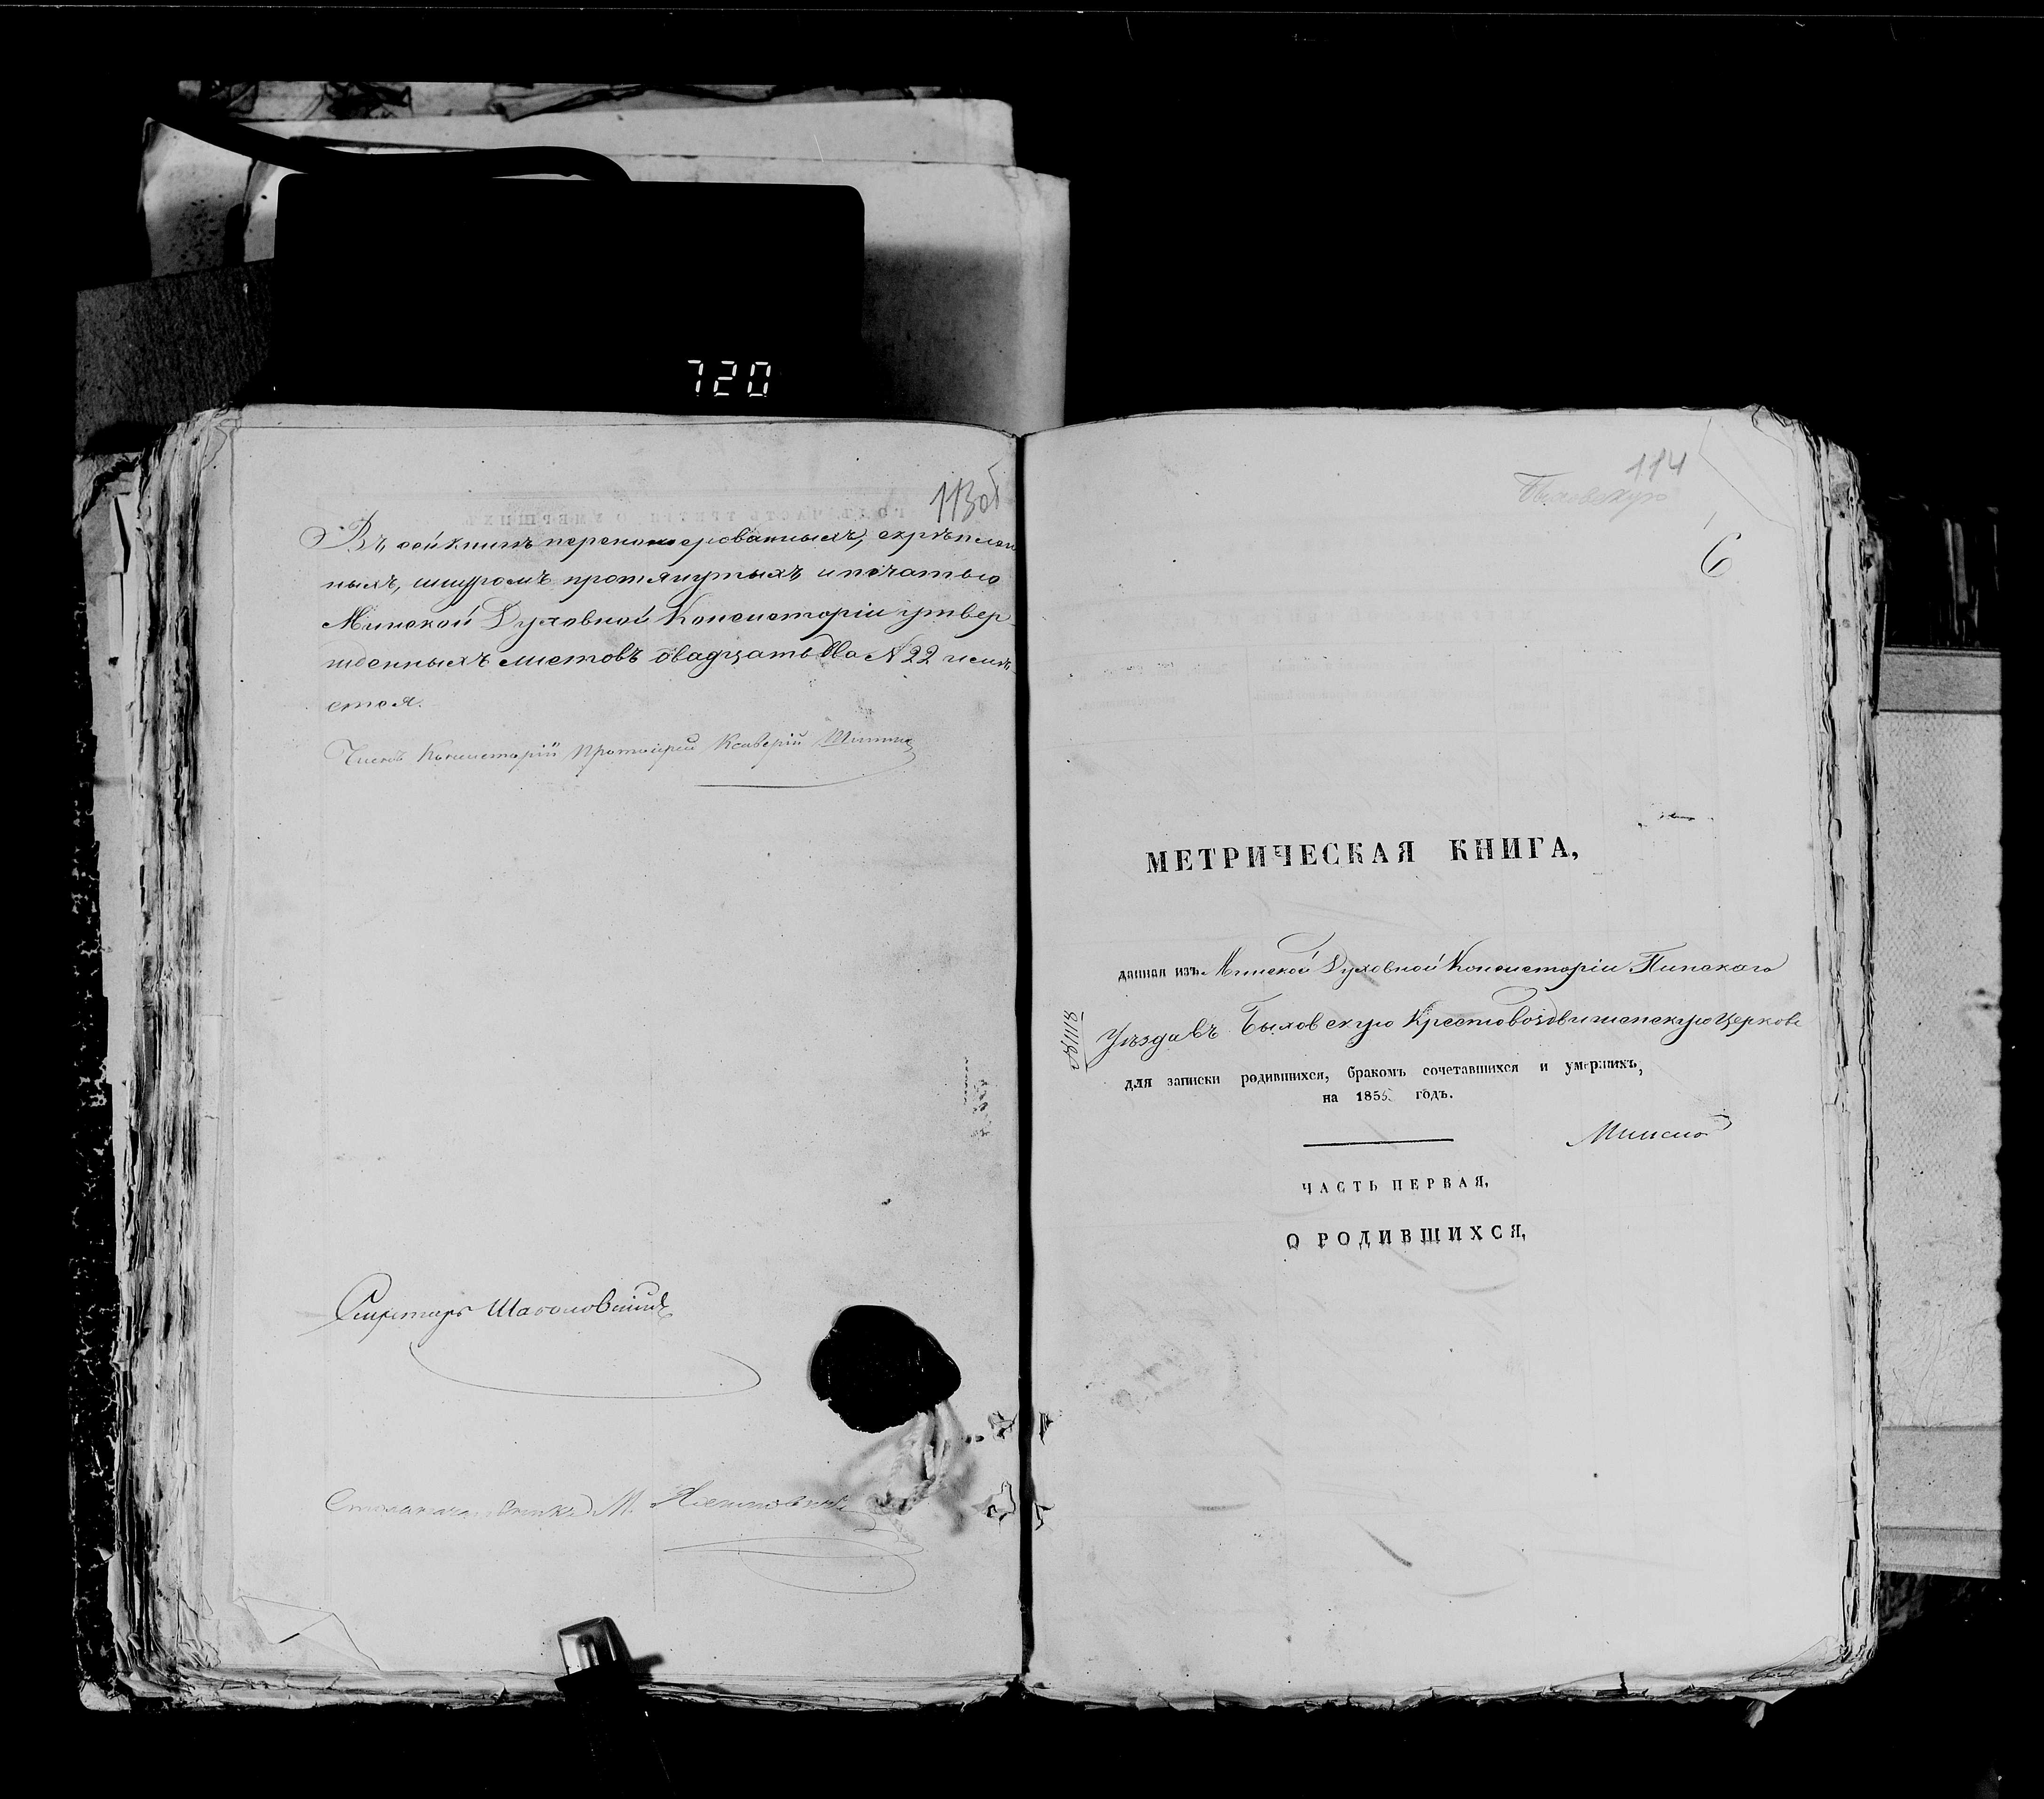 720
113об
Въ сей книгѣ перенумерованныхъ, скрѣплен
ныхъ, шнуромъ протянутыхъ и печатью
Минской Духовной Консисторіи утвер
жденныхъ листовъ двадцать два № 22 числи
тся.
Членъ Консисторіи Протоіерей Ксаверій
Секретарь
Столоначальникъ М.
114
Быховскую
6
МЕТРИЧЕСКАЯ КНИГА,
данная изъ Минской Духовной Консисторіи Пинскаго
Уѣзда въ Быховскую Крестовоздвиженскую Церковь
для записки родившихся, бракомъ сочетавшихся и умершихъ,
на 1855 годъ.
ЧАСТЬ ПЕРВАЯ,
О РОДИВШИХСЯ,